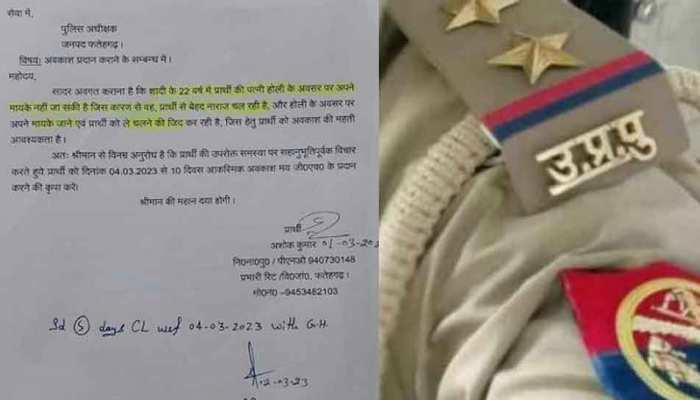 सेवा में,
पुलिस अधीक्षक
जनपद फतेहगढ़।
विषयः अवकाश प्रदान कराने के सम्बन्ध में।
महोदय,
सादर अवगत कराना है कि शादी के 22 वर्ष में प्रार्थी की पत्नी होली के अवसर पर अपने
मायके नहीं जा सकी है जिस कारण से वह, प्रार्थी से बेहद नाराज चल रही है, और होली के अवसर पर
अपने मायके जाने एवं प्रार्थी को ले चलने की जिद कर रही है, जिस हेतु प्रार्थी को अवकाश की महती
आवश्यकता है।
अतः श्रीमान से विनम्र अनुरोध है कि प्रार्थी की उपरोक्त समस्या पर सहानुभूतिपूर्वक विचार
करते हुये प्रार्थी को दिनांक 04.03.2023 से 10 दिवस आकस्मिक अवकाश मय जी०एच० के प्रदान
करने की कृपा करें।
श्रीमान की महान दया होगी।
प्रार्थी
अशोक कुमार 01-03-202
नि०ना०पु० / पीएनओ 940730148
प्रभारी रिट /वि०जां०, फतेहगढ़।
मो०न० –9453482103
Sd 5 days CL wef 04-03-2023 with G.H.
12-03-23
उ.प्र.पु